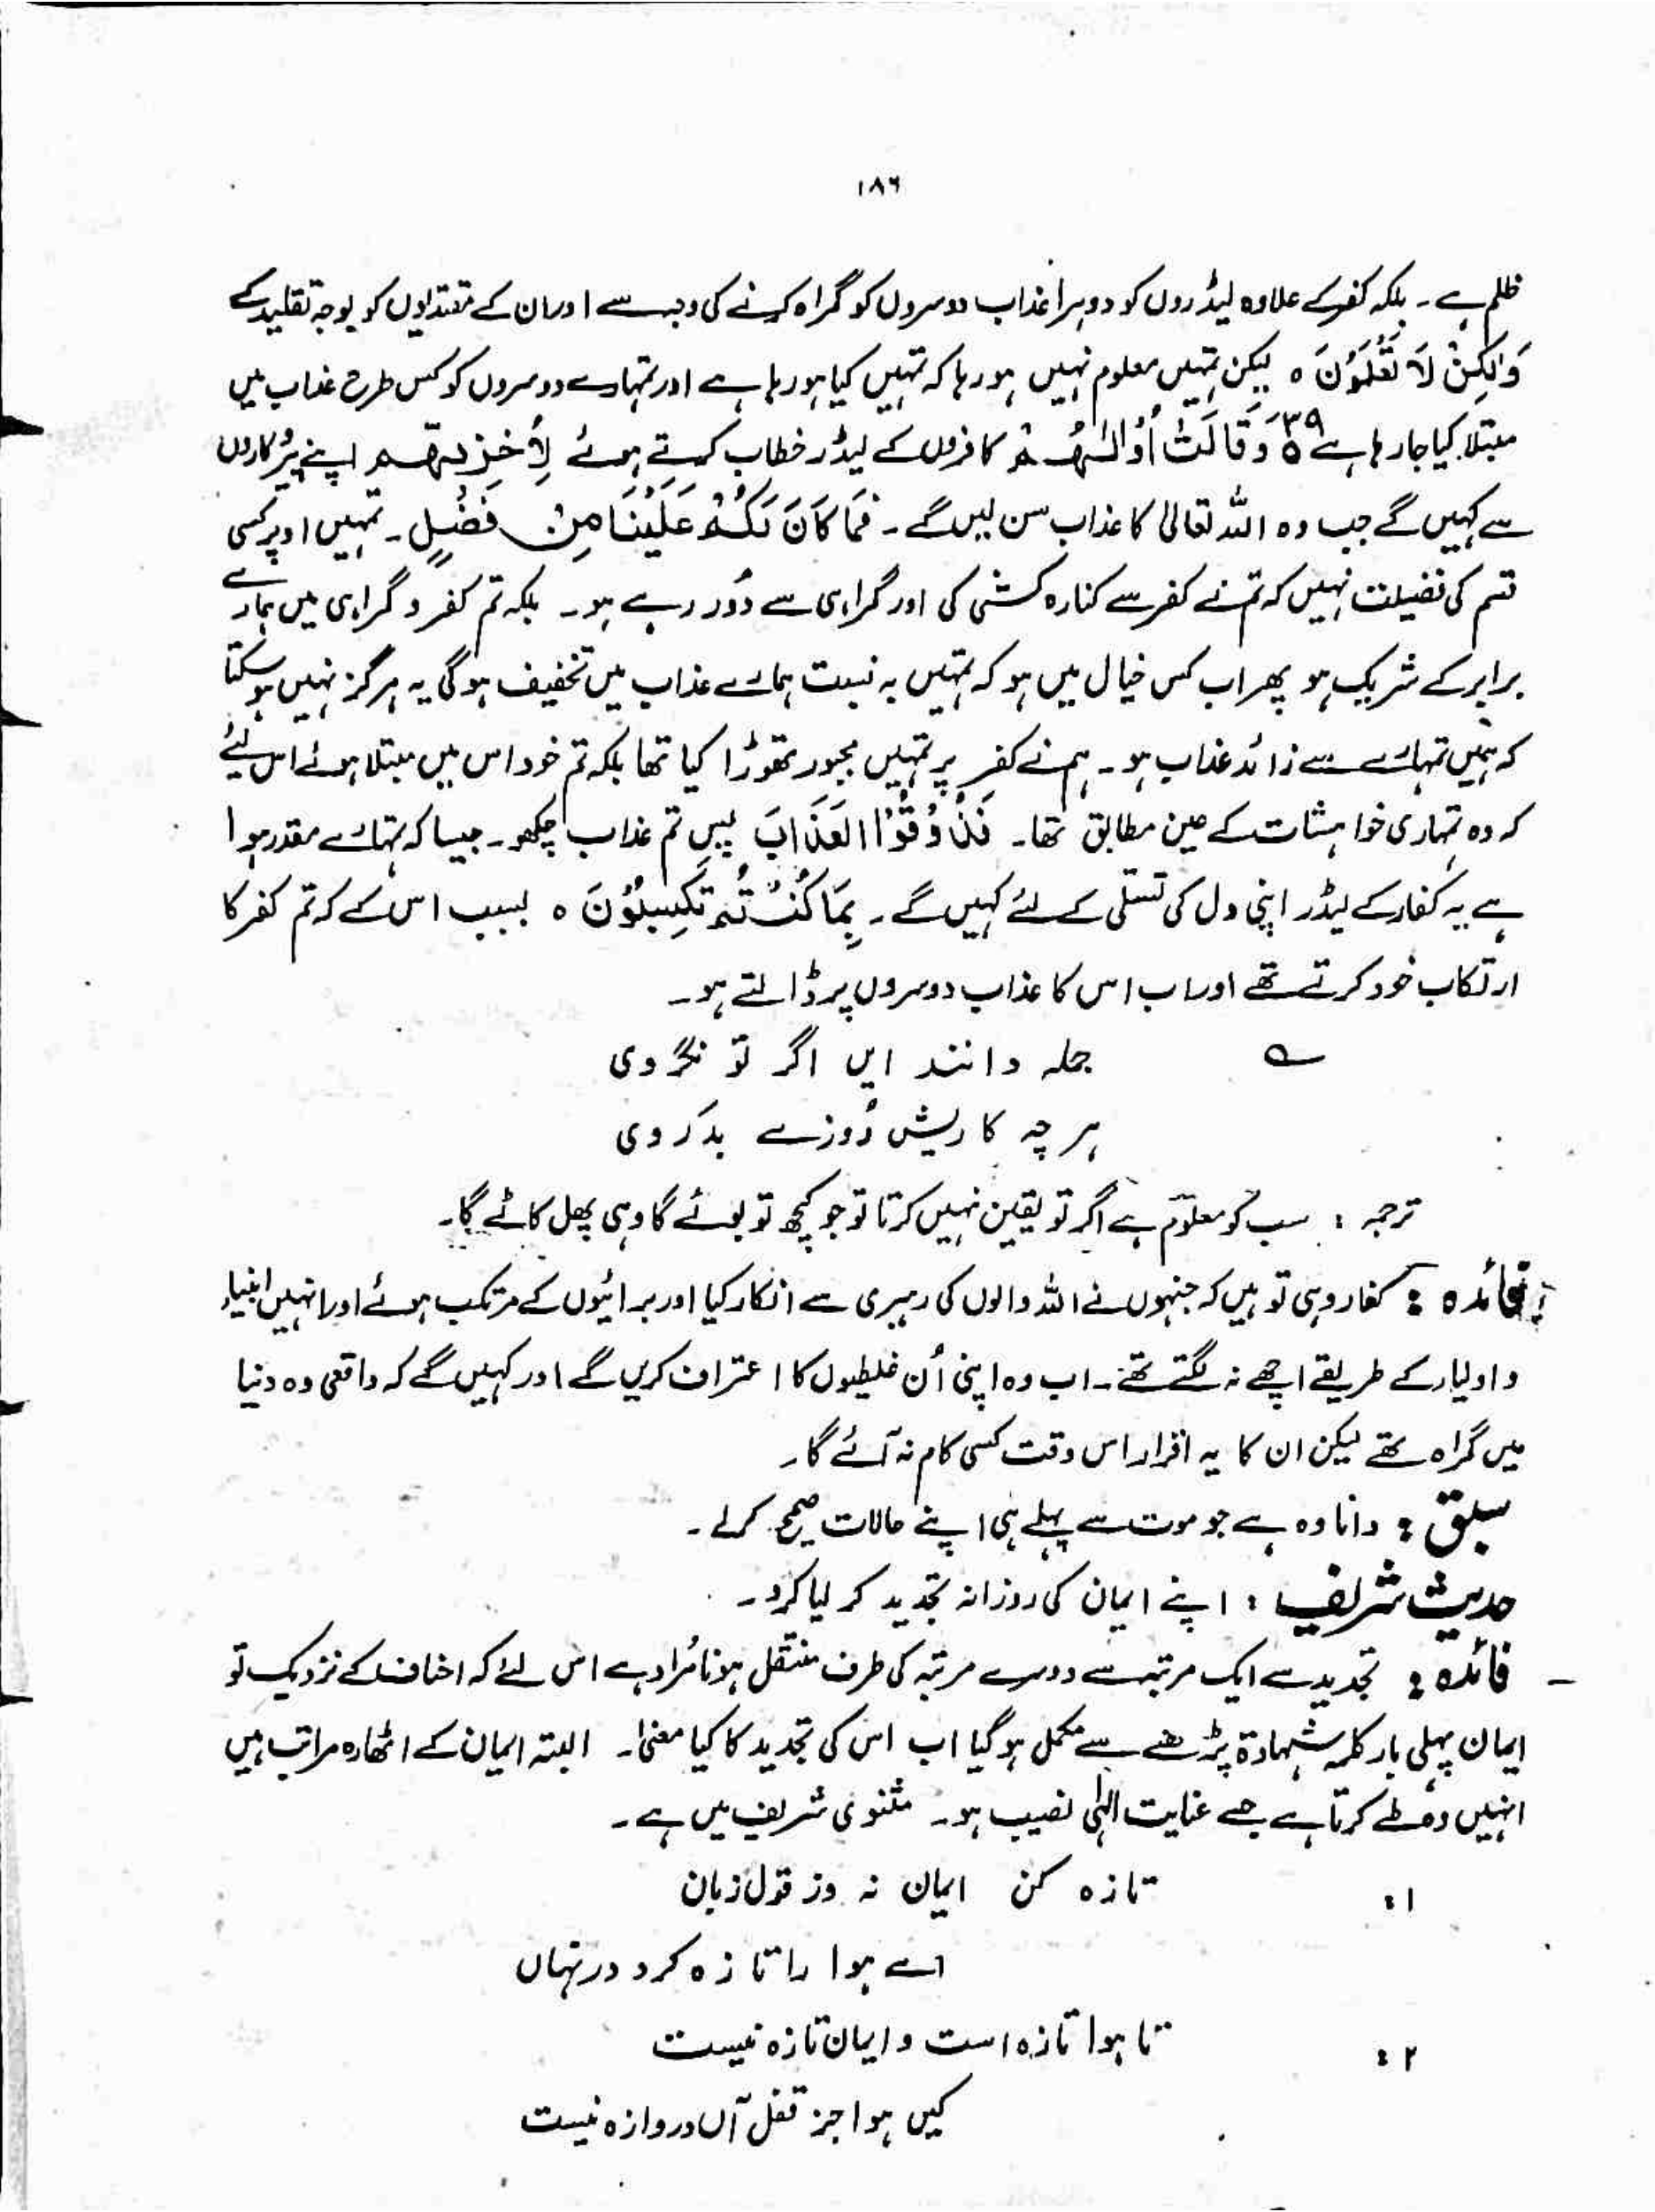 ۱۸۶
ظلم ہے ۔ بلکہ کفر کے علاوہ لیڈروں کو دوہرا عذاب دوسروں کو گمراہ کرنے کی وجہ سے اور ان کے مقتدیوں کو بوجہ تقلید کے
وَلٰکِنْ لَا تَعْلَمُوْنَ ہ لیکن تمہیں معلوم نہیں ہو رہا کہ تمہیں کیا ہو رہا ہے اور تمہارے دوسروں کو کس طرح عذاب میں
مبتلا کیا جا رہا ہے ۳۹ وَقَالَتْ اُوْلٰىهُمْ کافروں کے لیڈر خطاب کرتے ہوئے لِاُخْرٰىهُمْ اپنے پیروکاروں
سے کہیں گے جب وہ اللہ تعالیٰ کا عذاب سن لیں گے ۔ فَمَا كَانَ لَكُمْ عَلَيْنَا مِنْ فَضْلٍ ۔ تمہیں اوپر کسی
قسم کی فضیلت نہیں کہ تم نے کفر سے کنارہ کشی کی اور گمراہی سے دُور رہے ہو ۔ بلکہ تم کفر و گمراہی میں ہمارے
برابر کے شریک ہو پھر اب کس خیال میں ہو کہ تمہیں بہ نسبت ہمارے عذاب میں تخفیف ہوگی یہ ہرگز نہیں ہو سکتا
کہ ہمیں تمہارے سے زائد عذاب ہو ۔ ہم نے کفر پر تمہیں مجبور تھوڑا کیا تھا بلکہ تم خود اس میں مبتلا ہوئے اس لیئے
کہ وہ تمہاری خواہشات کے عین مطابق تھا ۔ فَذُوْقُوا الْعَذَابَ پس تم عذاب چکھو ۔ جیسا کہ تمہارے مقدر ہوا
ہے یہ کفار کے لیڈر اپنی دل کی تسلی کے لئے کہیں گے ۔ بِمَا كُنْتُمْ تَكْسِبُوْنَ ہ بسبب اس کے کہ تم کفر کا
ارتکاب خود کرتے تھے اور اب اس کا عذاب دوسروں پر ڈالتے ہو ۔
جملہ دانند ایں اگر تو نگروی
ہر چہ کاریش رُوزے بدروی
ترجمہ : سب کو معلوم ہے اگر تو یقین نہیں کرتا تو جو کچھ تو بوئے گا وہی پھل کاٹے گا ۔
فائدہ : کفار وہی تو ہیں کہ جنہوں نے اللہ والوں کی رہبری سے انکار کیا اور برائیوں کے مرتکب ہوئے اور انہیں انبیاء
و اولیاء کے طریقے اچھے نہ لگتے تھے ۔ اب وہ اپنی اُن غلطیوں کا اعتراف کریں گے اور کہیں گے کہ واقعی وہ دنیا
میں گمراہ تھے لیکن ان کا یہ اقرار اس وقت کسی کام نہ آئے گا ۔
سبق : دانا وہ ہے جو موت سے پہلے ہی اپنے حالات صحیح کر لے ۔
حدیث شریف : اپنے ایمان کی روزانہ تجدید کر لیا کرو ۔
فائدہ : تجدید سے ایک مرتبہ سے دوسرے مرتبہ کی طرف منتقل ہونا مُراد ہے اس لئے کہ احناف کے نزدیک تو
ایمان پہلی بار کلمہ شہادۃ پڑھنے سے مکمل ہو گیا اب اس کی تجدید کا کیا معنیٰ ۔ البتہ ایمان کے اٹھارہ مراتب ہیں
انہیں وہ طے کرتا ہے جسے عنایت الٰہی نصیب ہو ۔ مثنوی شریف میں ہے ۔
۱ : تازہ کن ایمان نہ وز قول زبان
اے ہوا را تازہ کرد در نہاں
۲ : تا ہوا تازہ است و ایمان تازہ نیست
کیں ہوا جز قفل آں دروازہ نیست